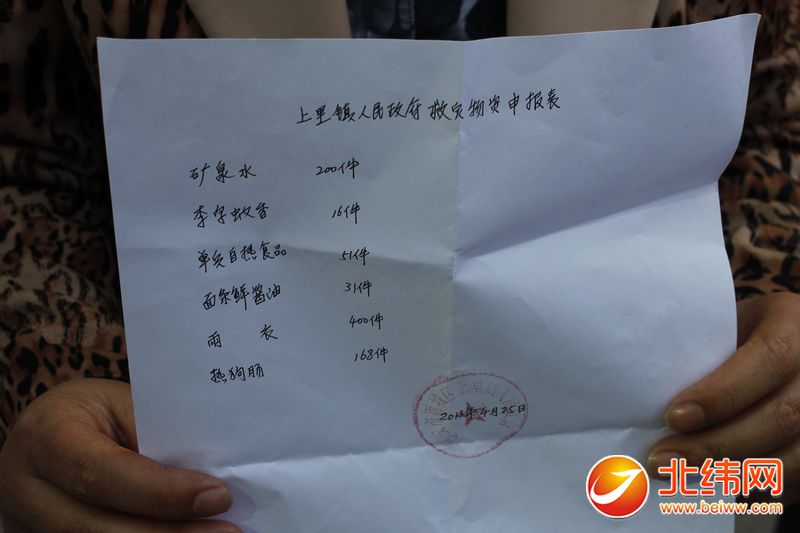 上里镇人民政府救灾物资申报表
矿泉水 200件
李字蚊香 16件
单兵自热食品 51件
面条鲜酱油 31件
雨衣 400件
热狗肠 168件
2013年4月25日
北纬网
www.beiww.com